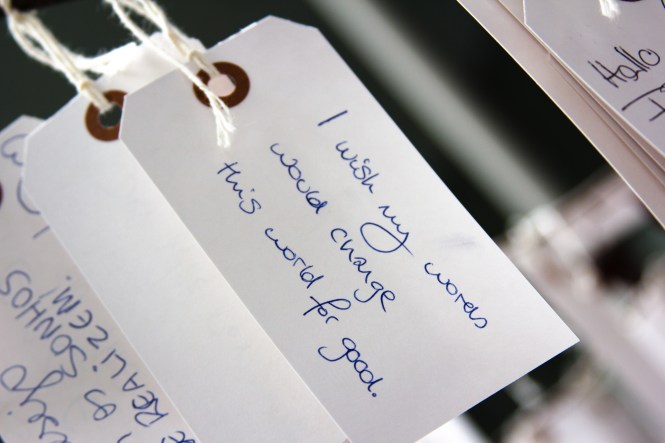 I wish my words
would change
this world for good.
Hallo
sejo
os SONHOS
REALIZEM!